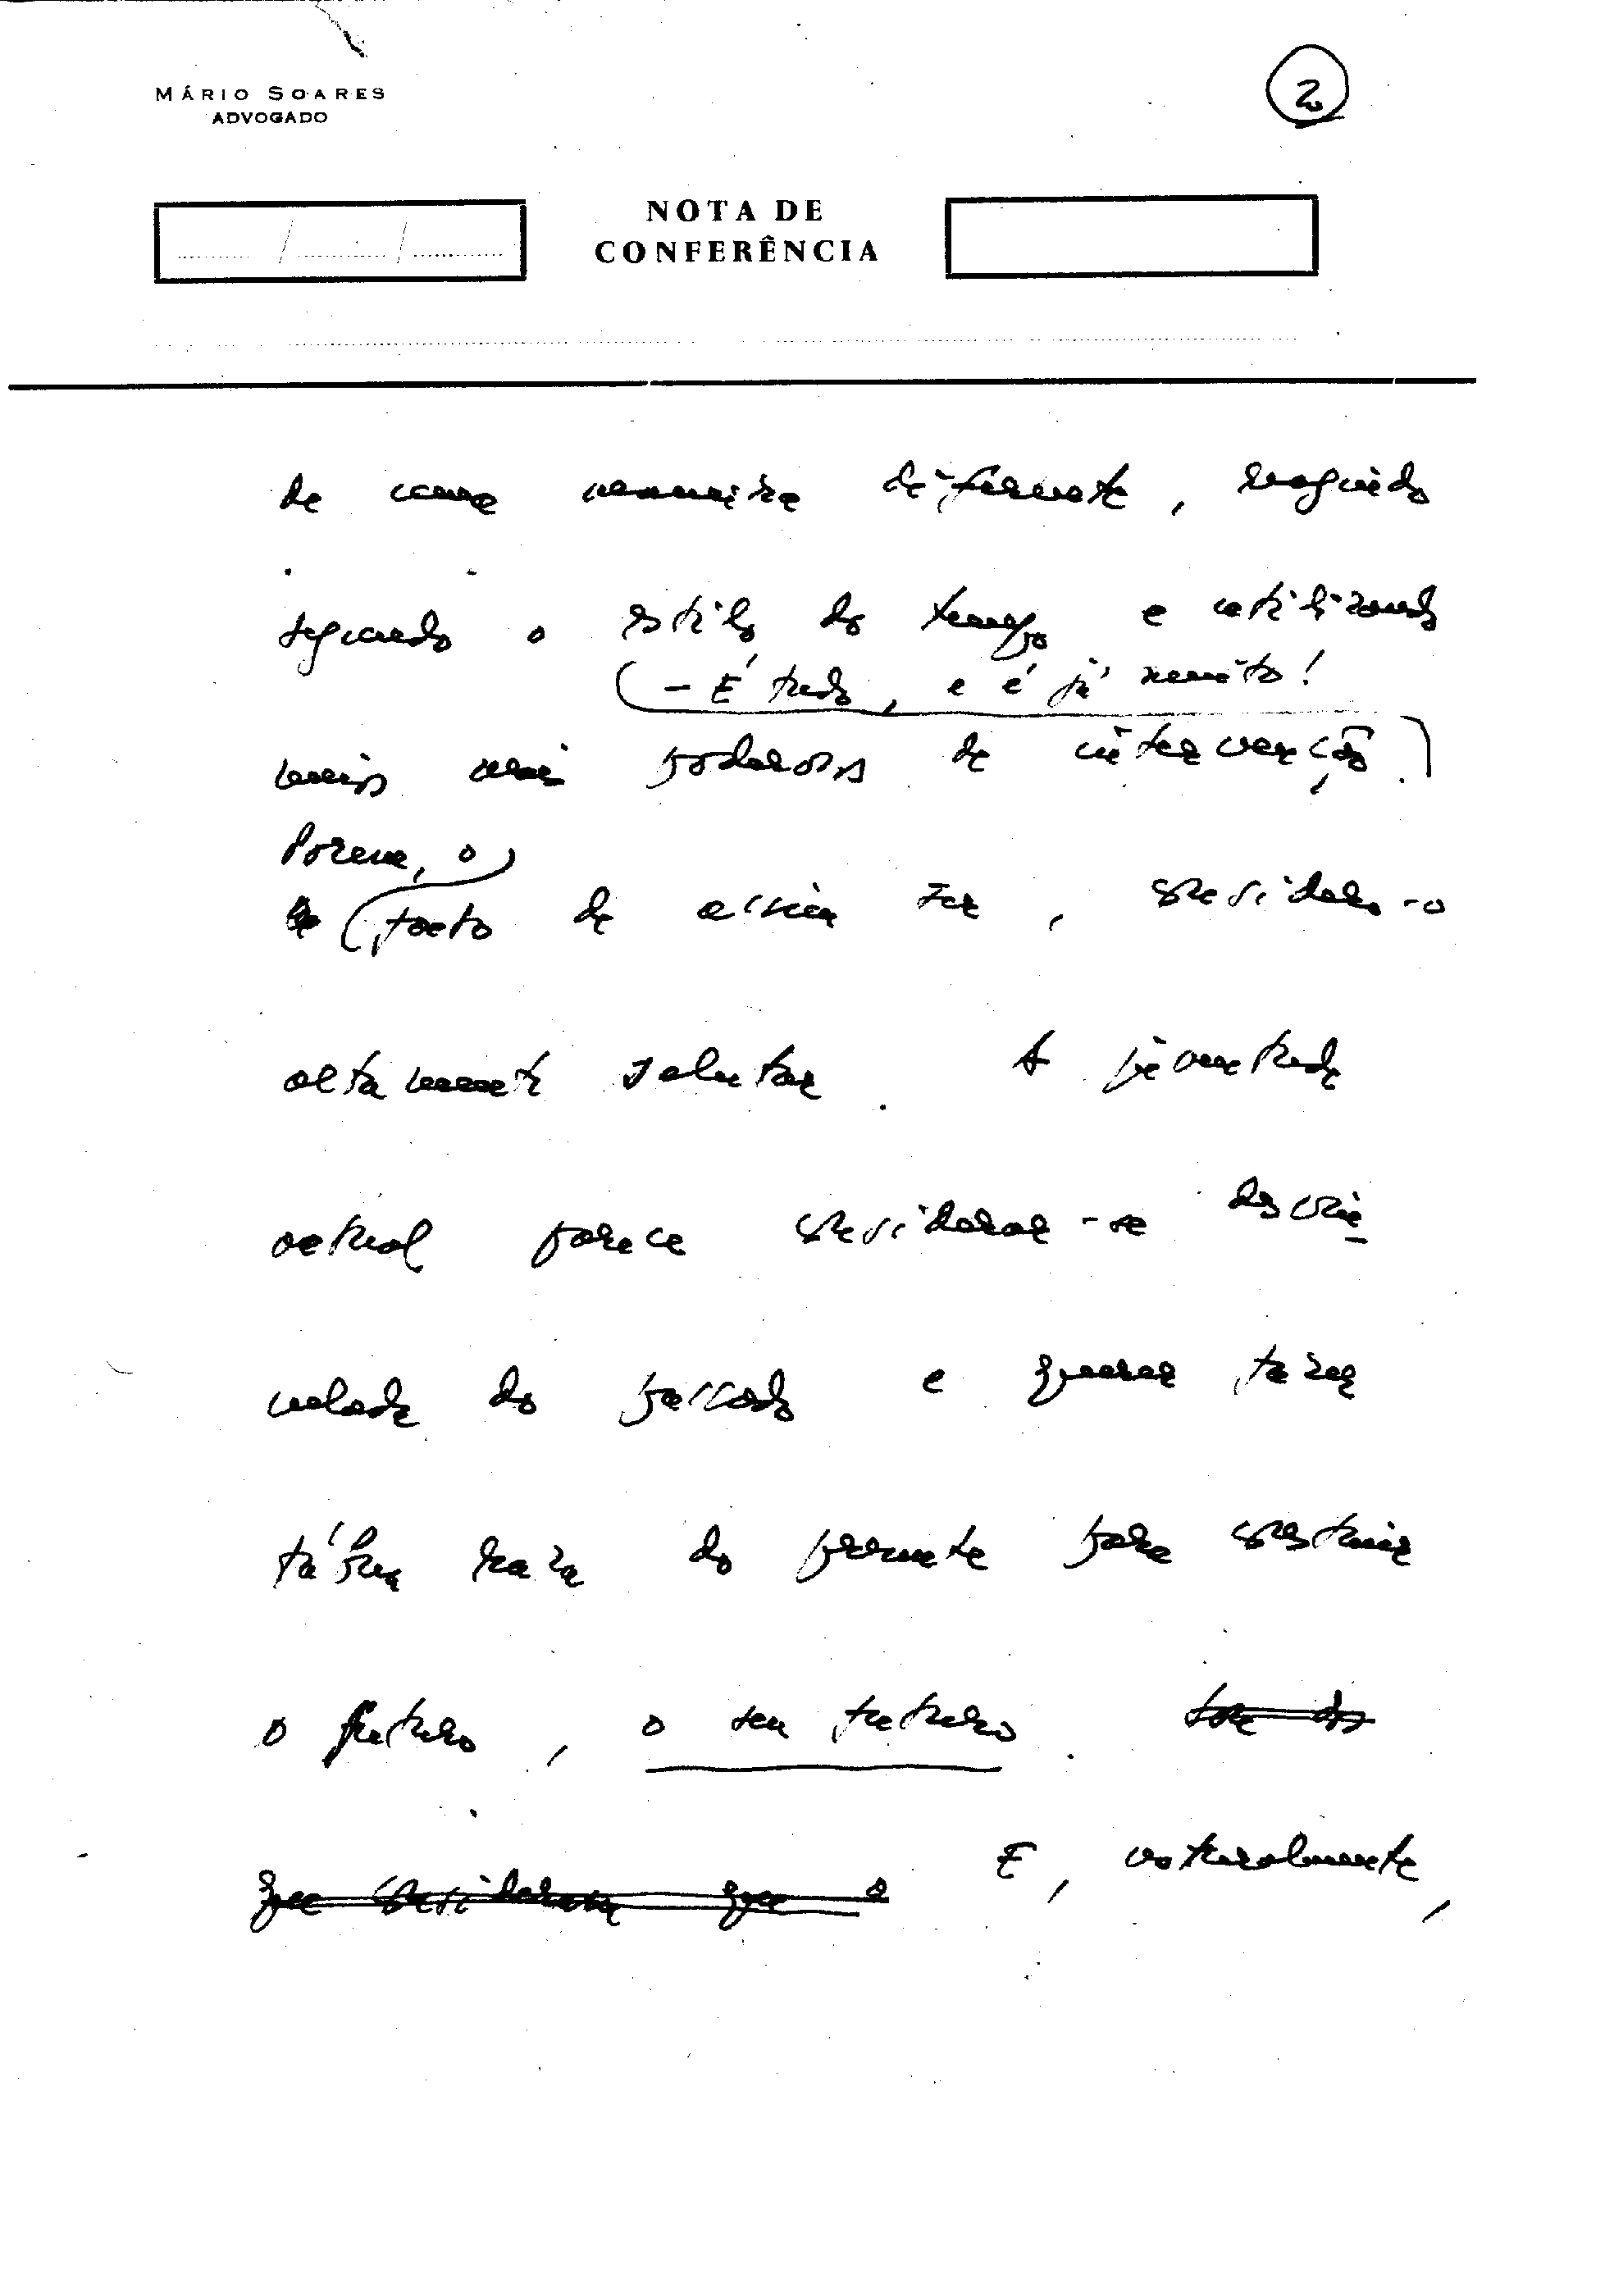 MÁRIO SOARES
ADVOGADO
2
NOTA DE
CONFERÊNCIA
de uma maneira diferente, reagindo
segundo o estilo do tempo e utilizando
– É tudo, e é já muito!
meios mais poderosos de intervenção.
Porém, o
facto de assim ser, considero-o
altamente salutar. A juventude
actual parece considerar-se desvin-
culada do passado e querer fazer
tábua raza do presente para construir
o futuro, o seu futuro.
que consideram que o
E, naturalmente,